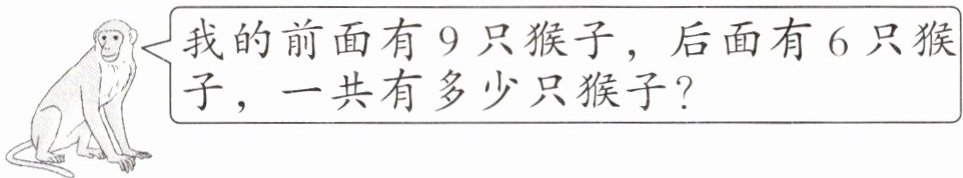 我的前面有9只猴子，后面有6只猴
子，一共有多少只猴子？